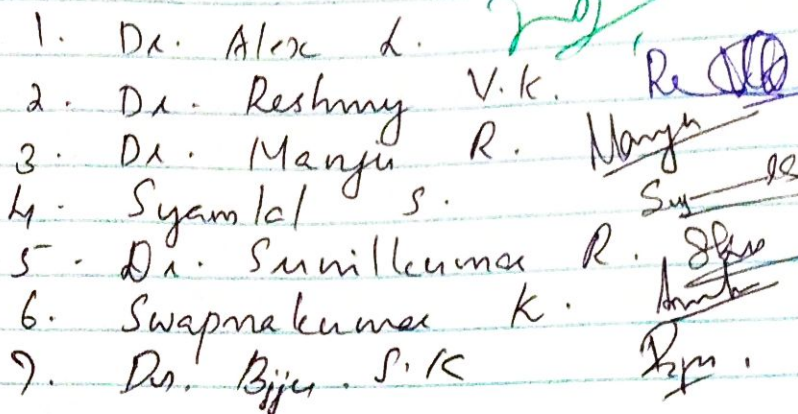 1. Dr. Alex L.
2. Dr. Reshmy V.K.
3. Dr. Manju R. Manju
4. Syamlal S.
5. Dr. Sunilkumar R.
6. Swapnakumar K.
7. Dr. Bijju. S.K